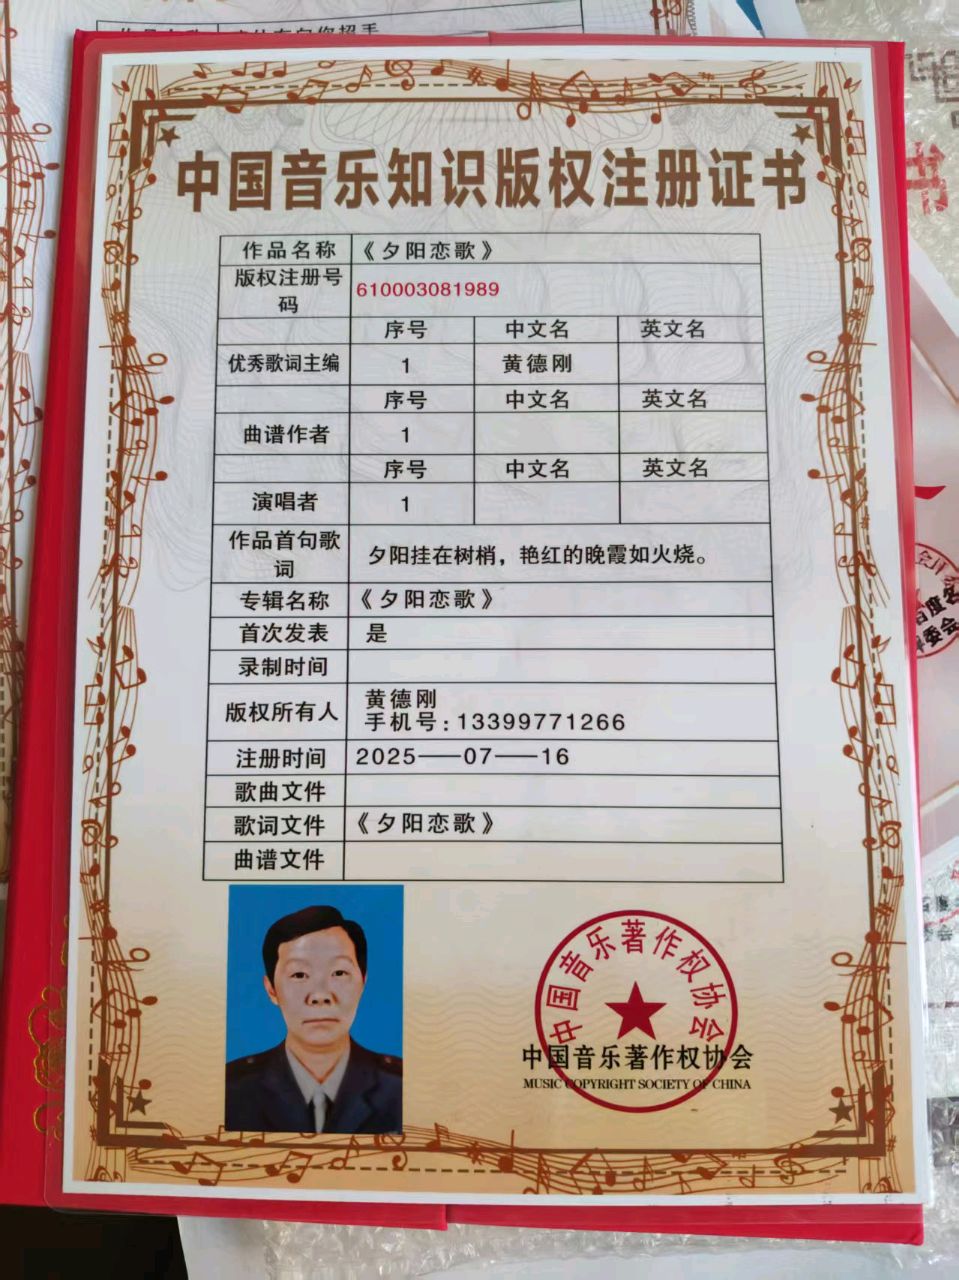 作品名称
向你招手
中国音乐知识版权注册证书
作品名称 《夕阳恋歌》
版权注册号码 610003081989
序号 中文名 英文名
优秀歌词主编 1 黄德刚
序号 中文名 英文名
曲谱作者 1
序号 中文名 英文名
演唱者 1
作品首句歌词 夕阳挂在树梢，艳红的晚霞如火烧。
专辑名称 《夕阳恋歌》
首次发表 是
录制时间
版权所有人 黄德刚
手机号:13399771266
注册时间 2025——07——16
歌曲文件
歌词文件 《夕阳恋歌》
曲谱文件
中国音乐著作权协会
中国音乐著作权协会
MUSIC COPYRIGHT SOCIETY OF CHINA
书
百度名
委会